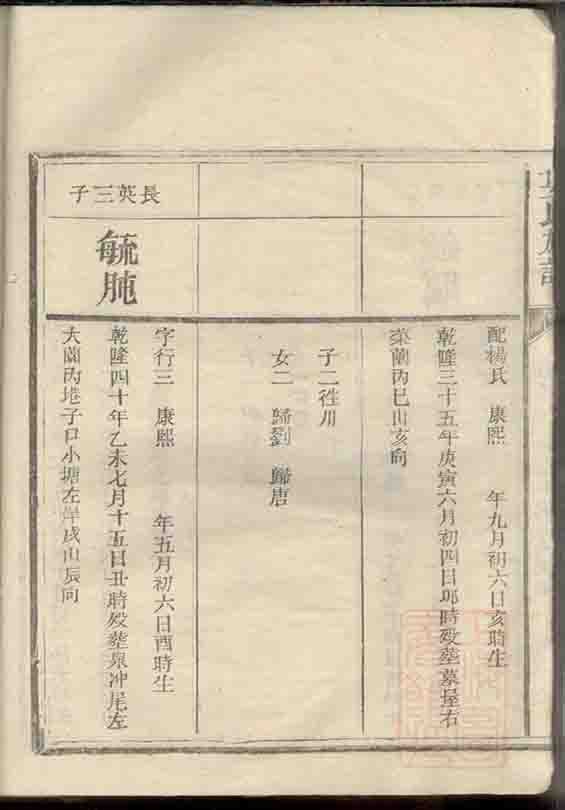 氏族譜
配楊氏 康熙 年九月初六日亥時生
乾隆三十五年庚寅六月初四日卯時歿塟墓屋右
菜蘭丙巳山亥向
子二 甡 川
女二 歸劉 歸唐
長英三子
毓肫
字行三 康熙 年五月初六日酉時生
乾隆四十年乙未七月十五日丑時歿塟泉冲尾左
大蘭丙塂子口小塘左岸戌山辰向